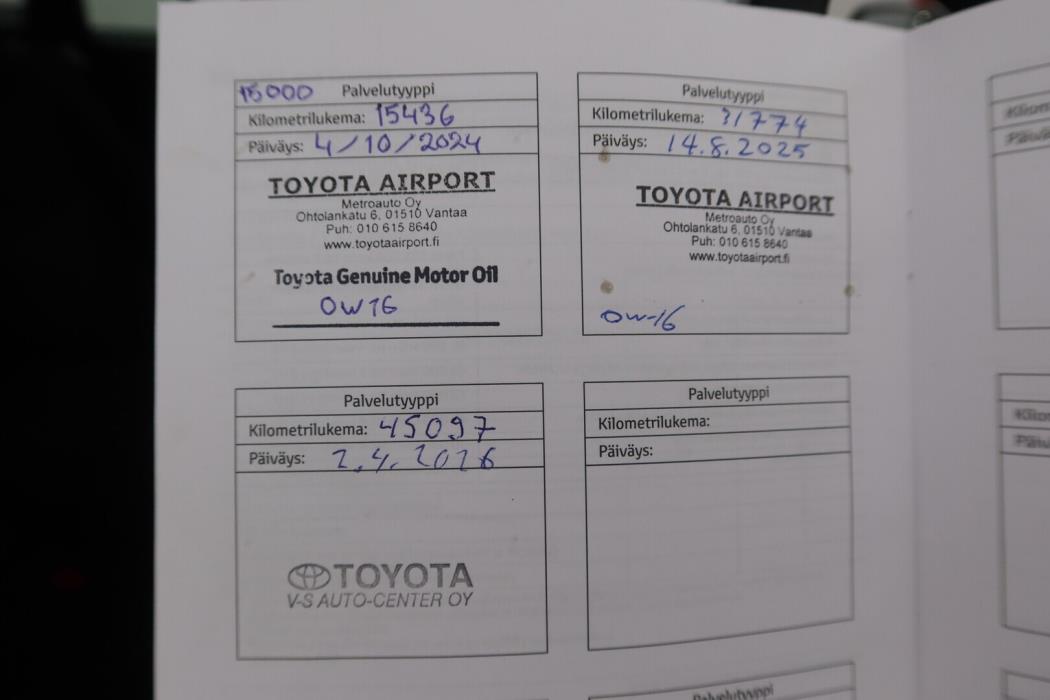 15000 Palvelutyyppi
Kilometrilukema: 15436
Päiväys: 4/10/2024
TOYOTA AIRPORT
Metroauto Oy
Ohtolankatu 6, 01510 Vantaa
Puh: 010 615 8640
www.toyotaairport.fi
Toyota Genuine Motor Oil
0W16
Palvelutyyppi
Kilometrilukema: 31774
Päiväys: 14.8.2025
TOYOTA AIRPORT
Metroauto Oy
Ohtolankatu 6, 01510 Vantaa
Puh: 010 615 8640
www.toyotaairport.fi
0W-16
Palvelutyyppi
Kilometrilukema: 45097
Päiväys: 2.4.2026
TOYOTA
V-S AUTO-CENTER OY
Palvelutyyppi
Kilometrilukema:
Päiväys:
Palvelutyyppi